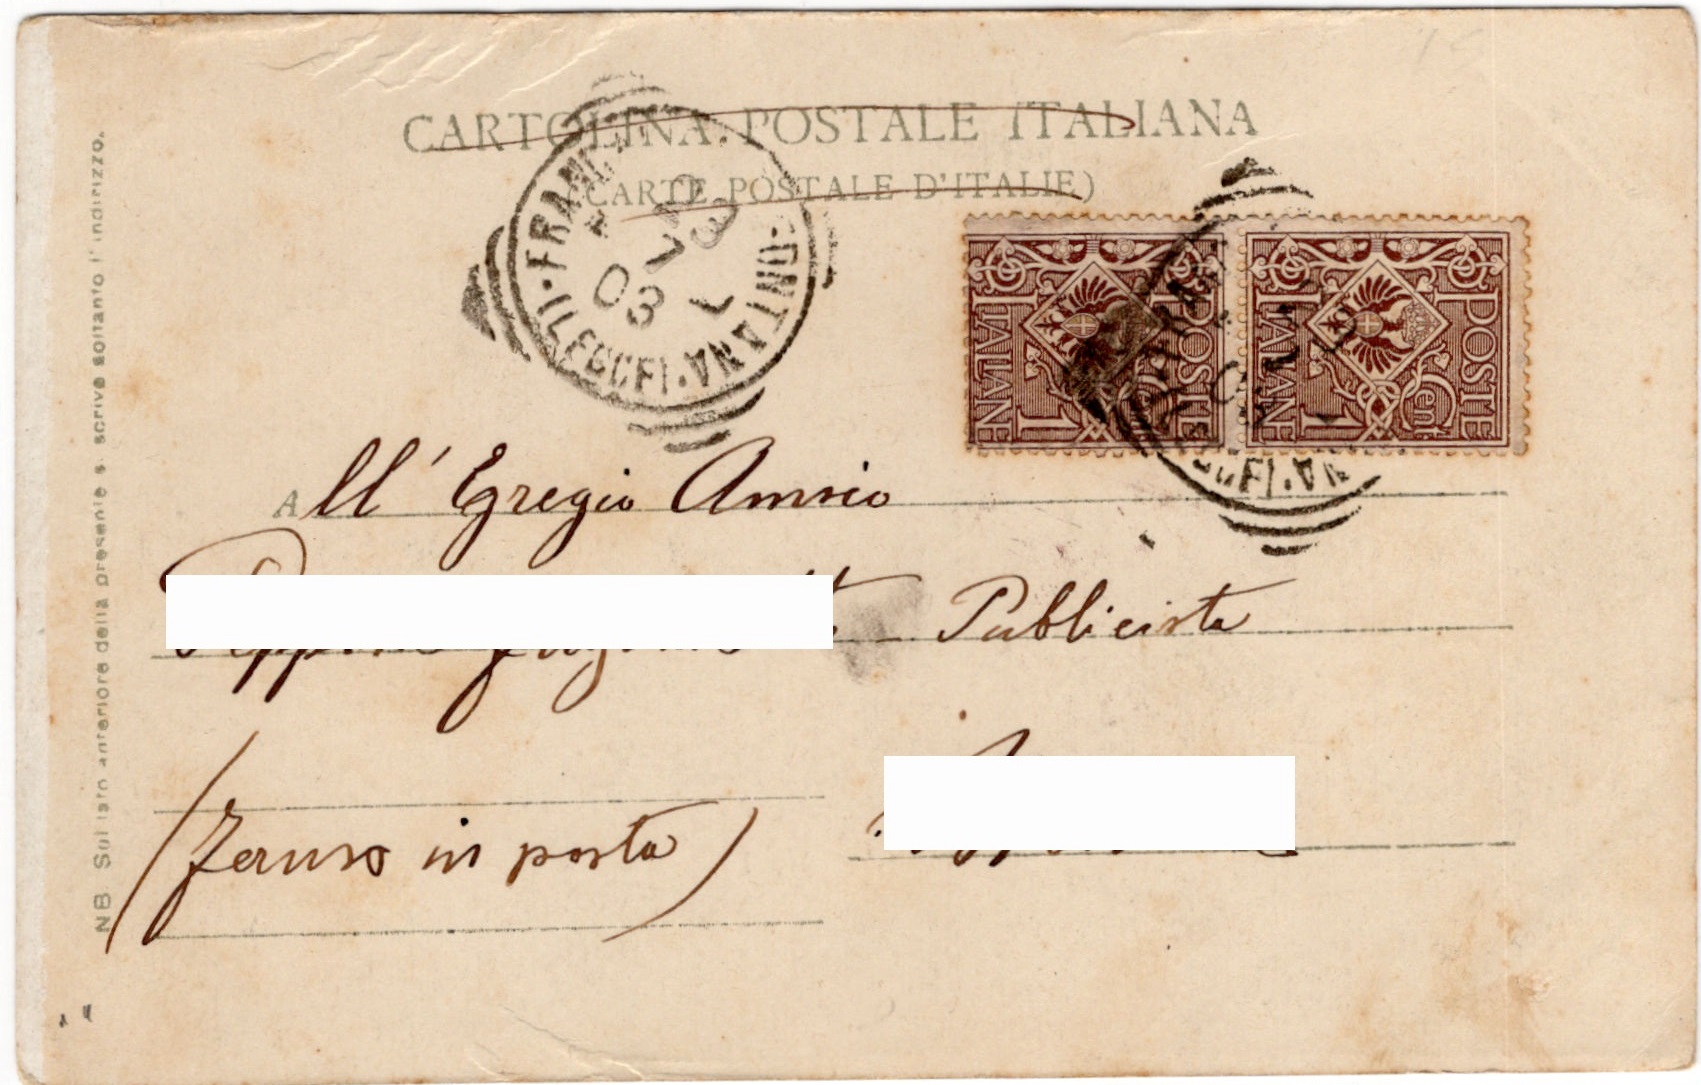 CARTOLINA POSTALE ITALIANA
(CARTE POSTALE D'ITALIE)
FRANCAVILLA FONTANA (LECCE)
7 03
POSTE ITALIANE Cent 1
POSTE ITALIANE Cent 1
All' Egregio Amico
Publicista
(fermo in posta)
NB Soltanto anteriore della presente si scrive soltanto l'indirizzo.